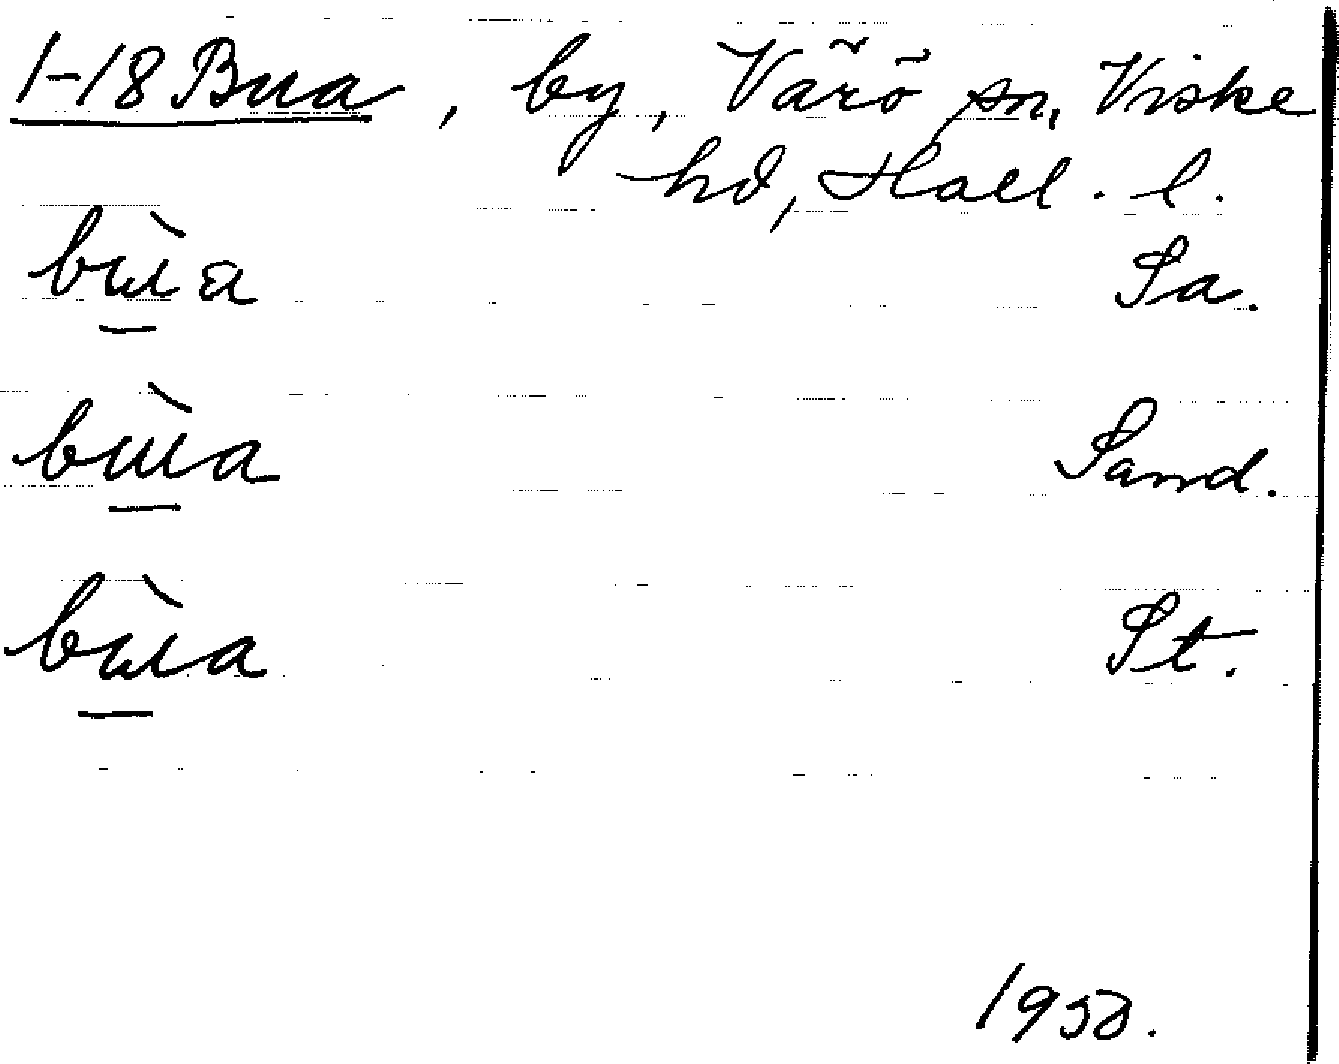 1-18 Bua, by, Värö sn, Viske
hd, Hall. l.
bùa Sa.
bùa Sand.
bùa St.
1950.